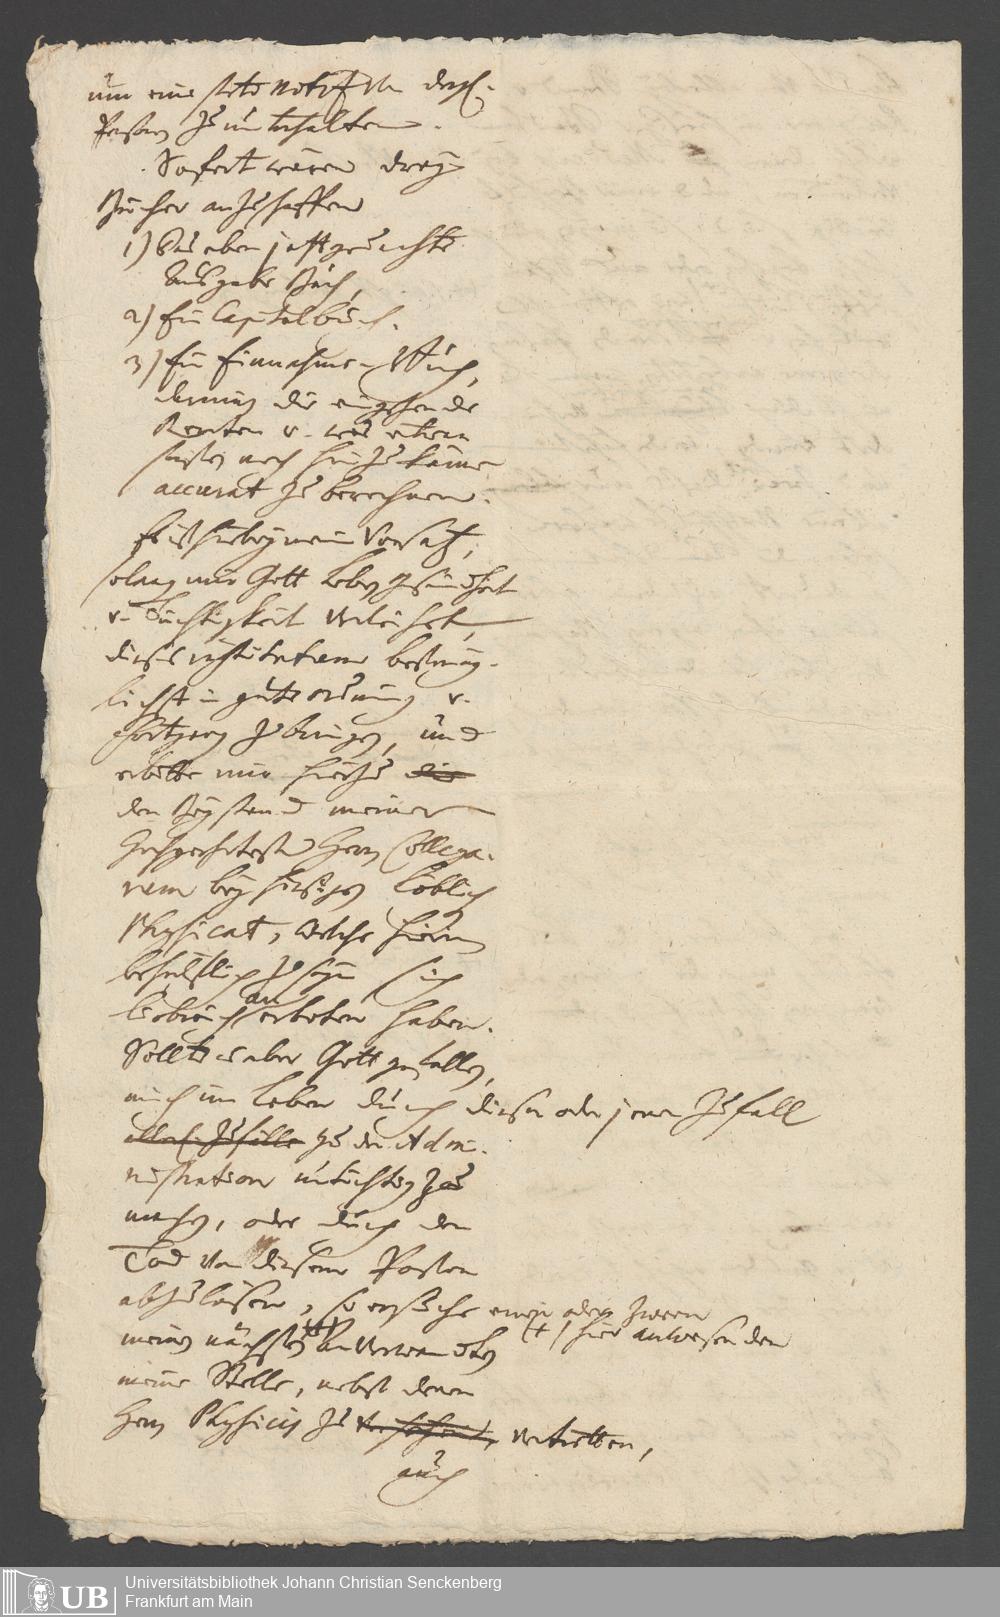 um eine stete notiz in dergl.
Personen zu unterhalten.
Sofort wären drey
Bücher anzuschaffen
1) Das eben jetzt gedachte
Ausgabe Buch,
2) Ein Capitalbuch.
3) Ein Einnahme-Buch,
darinn die eingehende
Renten u. was etwan
sonsten noch hinzukäme
accurat zu berechnen.
Es ist hiebey mein Vorsatz,
solang mir Gott Leben Gesundheit
u. Tüchtigkeit verleihet,
dieses institutum bestmög-
lichst in gute ordnung u.
Fortgang zu bringen, und
erbitte mir hierzu die
den Beystand meiner
Hochgeehrtesten Herrn Collega-
rum bey hiesigem löblichen
Physicat, welche hierin
behülflich zu seyn sich
liebreich an erboten haben.
Sollte es aber Gott gefallen,
mich im Leben durch diesen oder jenen Zufall
allerl. Zufälle zu der Admi-
nistration untüchtig zu
machen, oder durch den
Tod von diesem Posten
abzulösen, so ersuche einen oder zween
meiner nächsten (+) Anverwandten (+) hier anwesenden
meine Stelle, nebst denen
Herrn Physicis zu vertretten,
auch
UB
Universitätsbibliothek Johann Christian Senckenberg
Frankfurt am Main